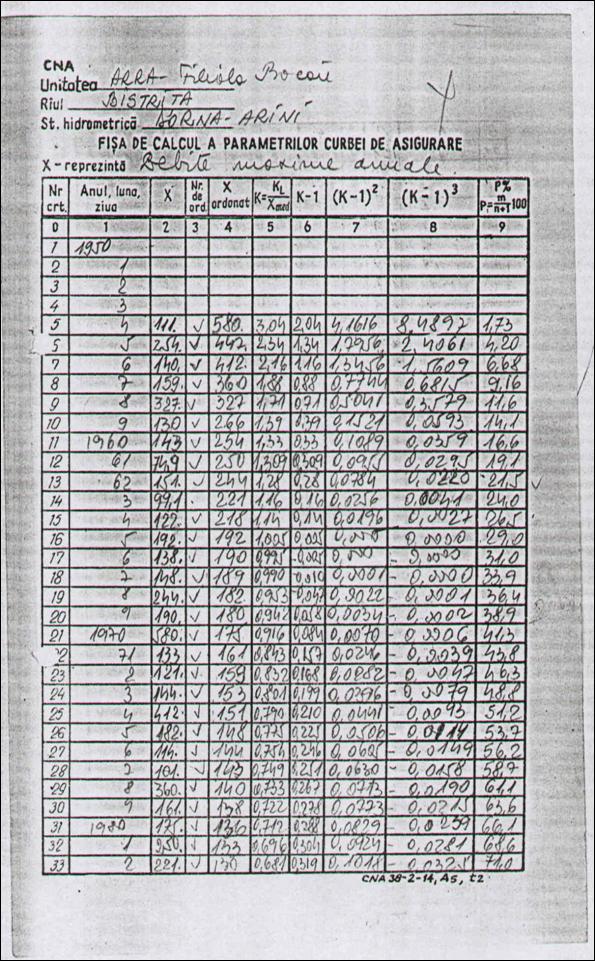 CNA
Unitatea ARRA - Filiala
Rîul BISTRIȚA
St. hidrometrică DORNA - ARINI
FIȘA DE CALCUL A PARAMETRILOR CURBEI DE ASIGURARE
X - reprezintă Debite maxime anuale.
Nr crt. Anul, luna, ziua X Nr. de ord. X ordonat K= K-1 (K-1)² (K-1)³ P%
0 1 2 3 4 5 6 7 8 9
1 1950
2 1
3 2
4 3
5 4 111. √ 580. 3,04 2,04 4,1616 8,4897 1,73
5 254. √ 442 2,34 1,34 1,7956 2,4061 4,20
7 6 140. √ 412. 2,16 1,16 1,3456 1,5609 6,68
8 7 159. √ 360 1,88 0,88 0,7744 0,6815 9,16
9 8 327. √ 327 1,71 0,71 0,5041 0,3579 11,6
10 9 130 √ 266 1,39 0,39 0,1521 0,0593 14,1
11 1960 143 √ 254 1,33 0,33 0,1089 0,0359 16,6
12 61 √ 250 1,309 0,309 0,0955 0,0295 19,1
13 62 151. √ 244 1,28 0,28 0,0784 0,0220 21,5 √
14 3 99,1 221 1,16 0,16 0,0256 0,0041 24,0
15 4 122. √ 218 1,14 0,14 0,0196 0,0027 26,5
16 5 192. √ 192 1,005 0,005 0,0000 29,0
17 6 138. √ 190 0,995 -0,005 31,0
18 7 148. √ 189 0,990 0,010 0,0001 - 0,0000 33,9
19 8 244. √ 182 0,953 0,047 0,0022 - 0,0001 36,4
20 9 190. √ 180 0,942 0,058 0,0034 - 0,0002 38,9
21 1970 580. √ 175 0,916 0,084 0,0070 - 0,0006 41,3
71 133 √ 161 0,843 0,157 0,0246 - 0,0039 43,8
23 2 121. √ 159 0,832 0,168 0,0282 - 0,0047 46,3
24 3 144. √ 153 0,801 0,199 0,0396 - 0,0079 48,8
25 4 412. √ 151 0,790 0,210 0,0441 - 0,0093 51,2
26 5 182. √ 148 0,775 0,225 0,0506 - 0,0114 53,7
27 6 114. √ 144 0,754 0,246 0,0605 - 0,0149 56,2
28 7 101. √ 143 0,749 0,251 0,0630 - 0,0158 58,7
29 8 360. √ 140 0,733 0,267 0,0713 - 0,0190 61,1
30 9 161. √ 138 0,722 0,278 0,0773 - 0,0215 63,6
31 1980 175. √ 136 0,712 0,288 0,0829 - 0,0239 66,1
32 1 250. √ 133 0,696 0,304 0,0924 - 0,0281 68,6
33 2 221. √ 130 0,681 0,319 0,1018 - 0,0325 71,0
CNA 38-2-14, A5, t2